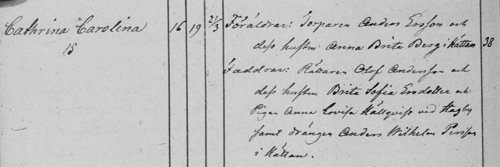 Cathrina Carolina 16 19 2/3 Föräldrar: Torparen Anders Ersson och
15 dess hustru Anna Brita Berg i Hättan 38
Faddrar: Rättaren Olof Andersson och
dess hustru Brita Sofia Ersdotter och
Pigan Anna Lovisa Hällqvist vid Hagby
samt drängen Anders Wilhelm Persson
i Hättan.